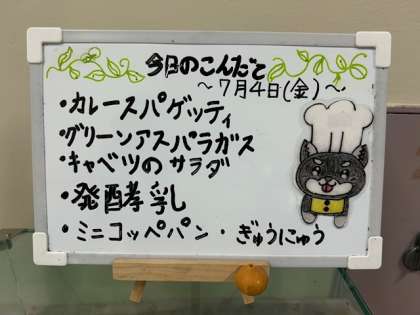 今日のこんだて
～7月4日(金)～
・カレースパゲッティ
・グリーンアスパラガス
・キャベツのサラダ
・発酵乳
・ミニコッペパン・ぎゅうにゅう